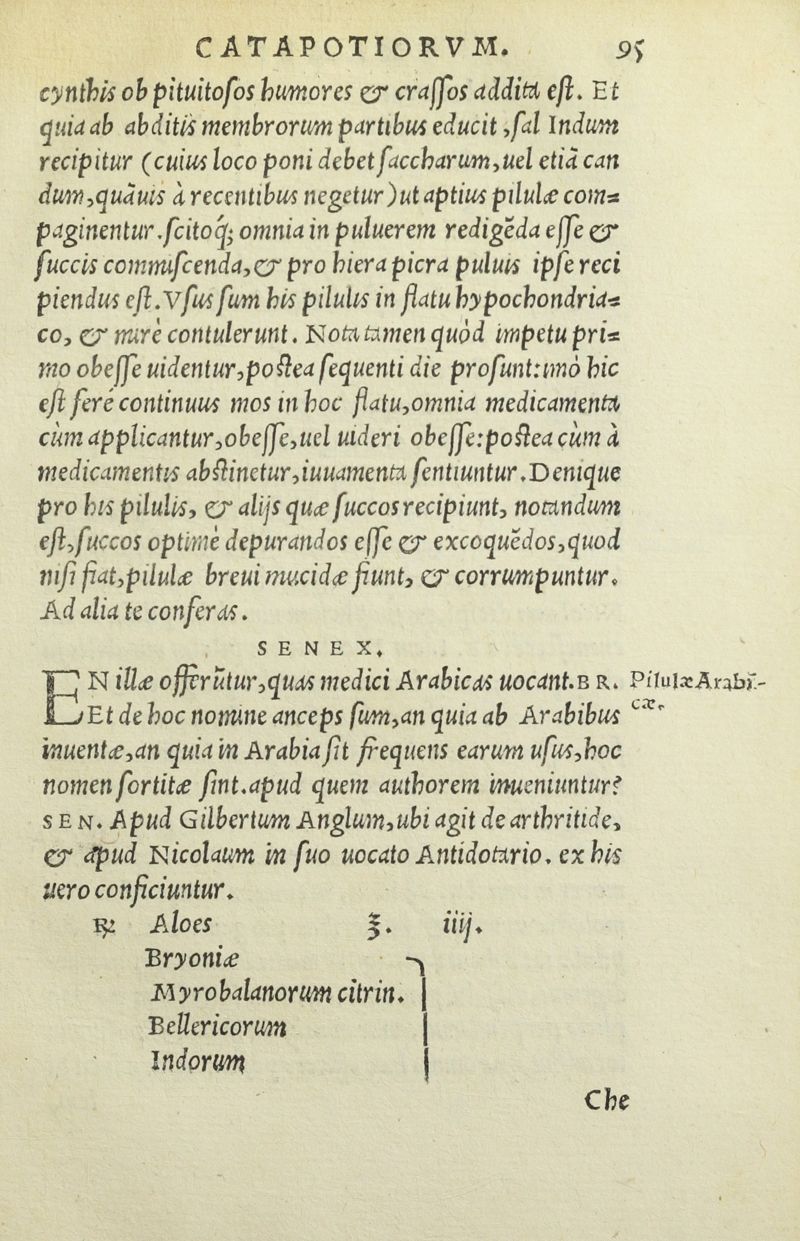 CATAPOTIORVM. 95
cynthis ob pituitosos humores & crassos addita est. Et
quia ab abditis membrorum partibus educit, sal Indum
recipitur (cuius loco poni debet saccharum, uel etiā can
dum, quāuis à recentibus negetur) ut aptius pilulæ com=
paginentur. scitoq́; omnia in puluerem redigēda esse &
succis commiscenda, & pro hiera picra puluis ipse reci
piendus est. Vsus sum his pilulis in flatu hypochondria=
co, & mirè contulerunt. Nota tamen quòd impetu pri=
mo obesse uidentur, postea sequenti die prosunt: imò hic
est ferè continuus mos in hoc flatu, omnia medicamenta
cùm applicantur, obesse, uel uideri obesse: postea cùm à
medicamentis abstinetur, iuuamenta sentiuntur. Denique
pro his pilulis, & alijs quæ succos recipiunt, notandum
est, succos optimè depurandos esse & excoquēdos, quod
nisi fiat, pilulæ breui mucidæ fiunt, & corrumpuntur.
Ad alia te conferas.
SENEX.
EN illæ offerūtur, quas medici Arabicas uocant. BR. Pilulæ Arabi-
Et de hoc nomine anceps sum, an quia ab Arabibus cæ.
inuentæ, an quia in Arabia sit frequens earum usus, hoc
nomen sortitæ sint. apud quem authorem inueniuntur?
SEN. Apud Gilbertum Anglum, ubi agit de arthritide,
& apud Nicolaum in suo uocato Antidotario. ex his
uero conficiuntur.
℞ Aloes ℥. iiij.
Bryoniæ
Myrobalanorum citrin.
Bellericorum
Indorum
Che